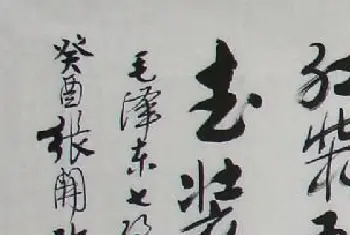 红装
武装
毛泽东七
癸酉張開